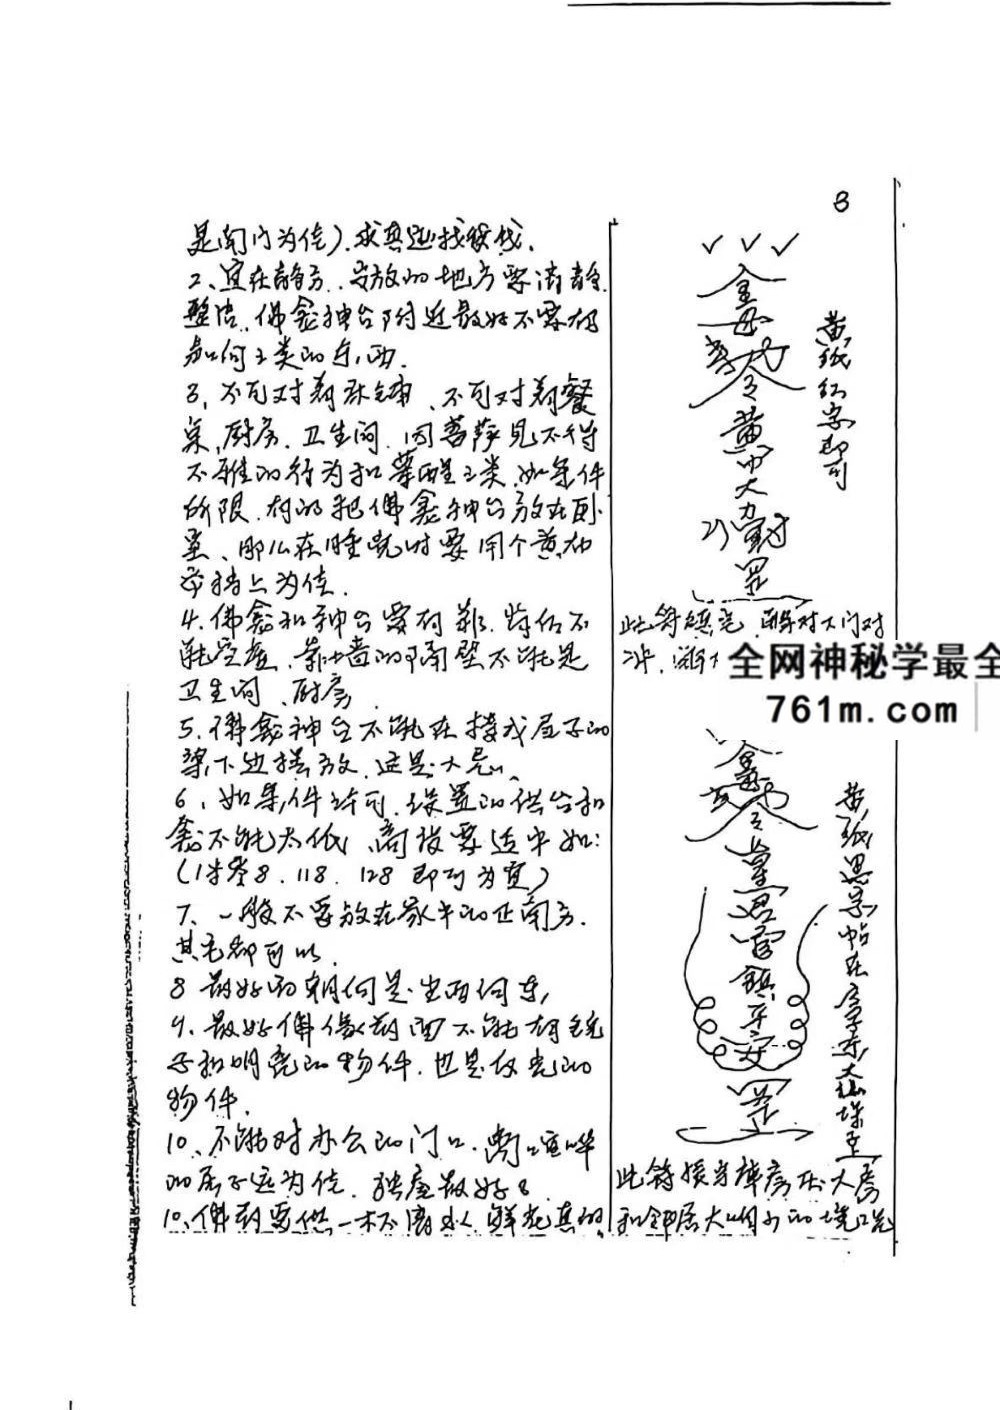 8
是向门为佳).求真迹找彼岸.
2、宜在静方.安放的地方要清静.
整洁.佛龛神台附近最好不要有
如何之类的东西.
3,不可对着卧铺、不可对着餐
桌,厨房.卫生间.因菩萨见不得
不雅的行为和荤腥之类.如条件
所限.有的把佛龛神台放在卧
室、那么在睡觉时要用个黄布
帘挡上为佳.
4.佛龛和神台要有靠.背后不
能空虚、靠墙的隔壁不能是
卫生间、厨房
5.佛龛神台不能在楼或屋子的
梁下边摆放.这是大忌.
6、如条件许可.设置的供台和
龛不能太低、高度要适中如:
8.118.128即可为宜)
7、一般不要放在家中的正南方.
其它都可以.
8最好的朝向是坐西向东,
9、最好佛像对面不能有镜
子和明亮的物件.也是反光的
物件.
10、不能对办公的门口.喧哗
的屋子远为佳.独座最好.
10.佛前要供一杯清水、鲜花真的
金母
令
黄巾大力
罡
黄纸红字即可
此符镇宅.解对大门对
冲.
全网神秘学最全
761m.com
令
镇平安
罡
黄纸黑字帖在
此符接
和邻居大